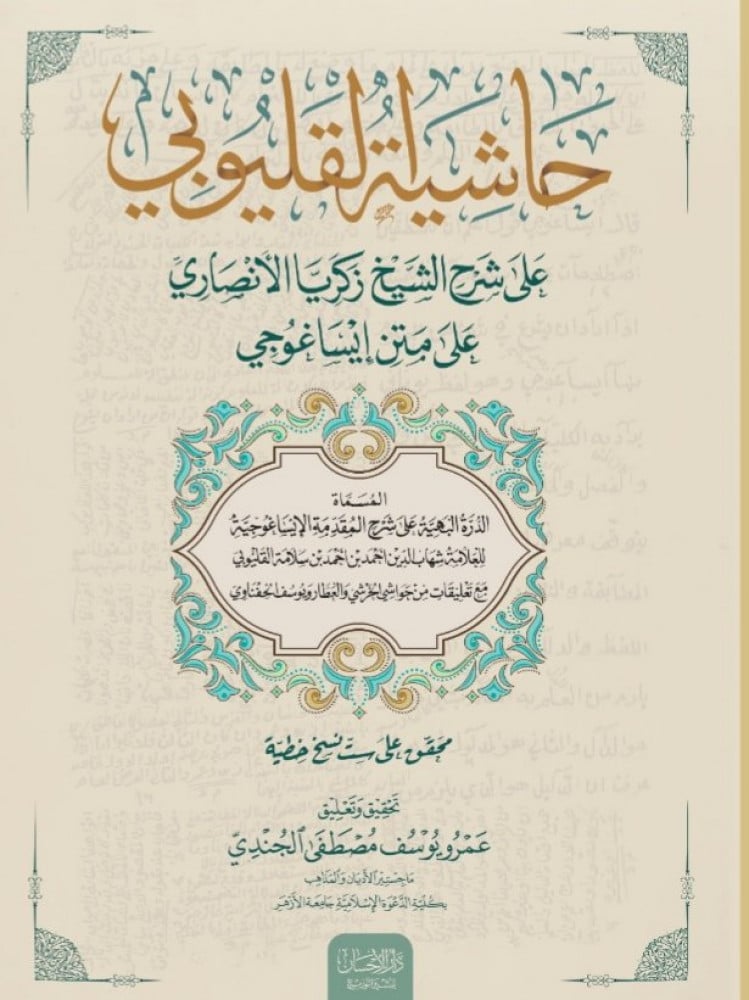 حَاشِيَةُ القَلْيُوبِي
عَلَى شَرْحِ الشَّيْخِ زَكَرِيَّا الأَنْصَارِيّ
عَلَى مَتْنِ إِيْسَاغُوجِي
المُسَمَّاة
الدُّرَّةُ البَهِيَّةُ عَلَى شَرْحِ المُقَدِّمَةِ الإِيْسَاغُوجِيَّةِ
لِلعَلَّامَةِ شِهَابِ الدِّينِ أَحْمَدَ بْنِ أَحْمَدَ بْنِ سَلَامَةَ القَلْيُوبِي
مَعَ تَعْلِيقَاتٍ مِنْ حَوَاشِي الخَرَشِي وَالعَطَّارِ وَيُوسُفَ الحِفْنَاوِي
محقق على ست نسخ خطية
تَحْقِيق وَتَعْلِيق
عَمْرو يُوسُف مُصْطَفَى الجُنْدِيّ
مَاجستير الأديان والمذاهب
بكلية الدعوة الإسلامية جامعة الأزهر
دار الإحسان
للنشر والتوزيع